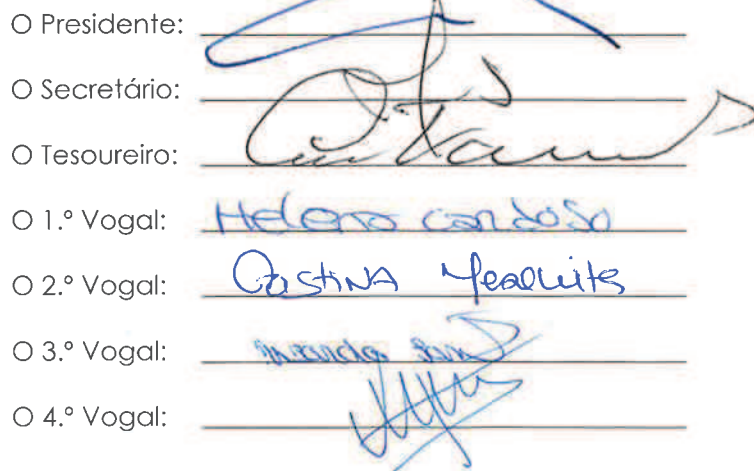 O Presidente:
O Secretário:
O Tesoureiro:
O 1.º Vogal: Helena Cardoso
O 2.º Vogal: Cristina Mesquita
O 3.º Vogal:
O 4.º Vogal: